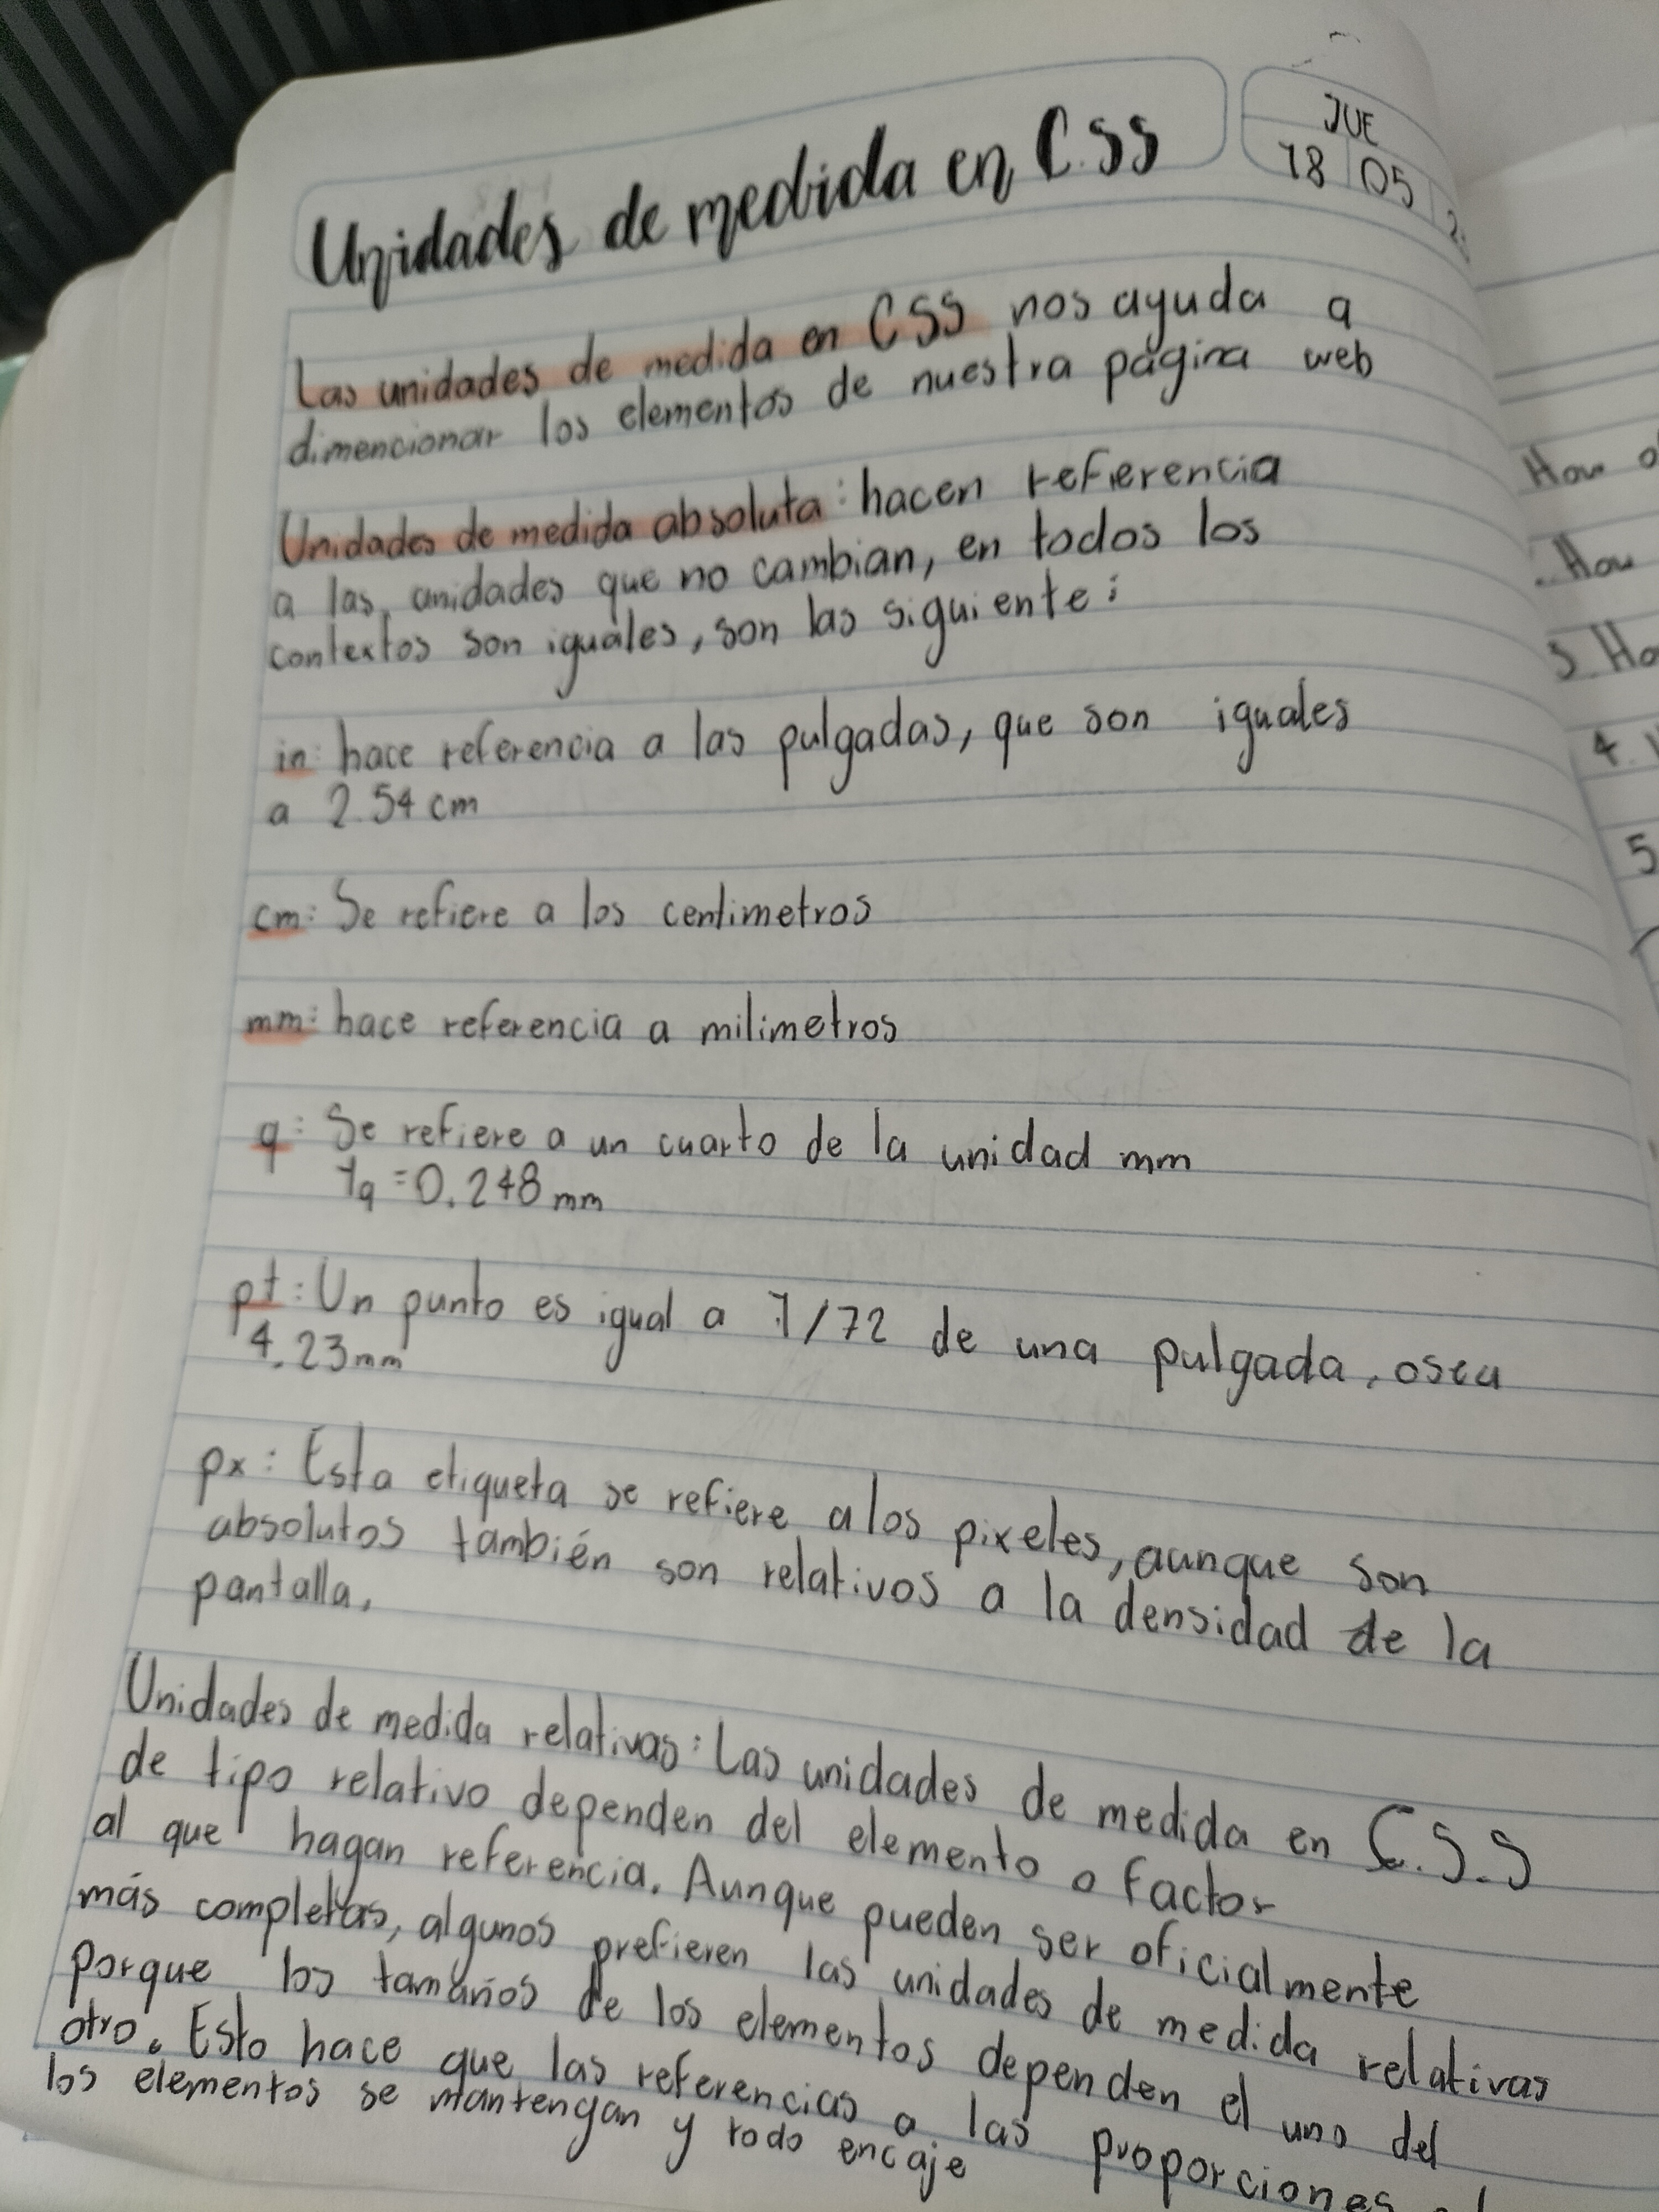 Unidades de medida en C.SS
JUE
18 05
Las unidades de medida en CSS nos ayuda a
dimencionar los elementos de nuestra página web
Unidades de medida absoluta: hacen referencia
a las unidades que no cambian, en todos los
contextos son iguales, son las siguiente:
in: hace referencia a las pulgadas, que son iguales
a 2.54 cm
cm: Se refiere a los centimetros
mm: hace referencia a milimetros
q: Se refiere a un cuarto de la unidad mm
1q = 0.248 mm
pt: Un punto es igual a 1/72 de una pulgada, osea
4.23mm
px: Esta etiqueta se refiere a los pixeles, aunque son
absolutos también son relativos a la densidad de la
pantalla.
Unidades de medida relativas: Las unidades de medida en C.S.S
de tipo relativo dependen del elemento o factor
al que hagan referencia. Aunque pueden ser oficialmente
más completas, algunos prefieren las unidades de medida relativas
porque los tamaños de los elementos dependen el uno del
otro. Esto hace que las referencias a las proporciones
los elementos se mantengan y todo encaje
How
How
3. Ho
4.
5